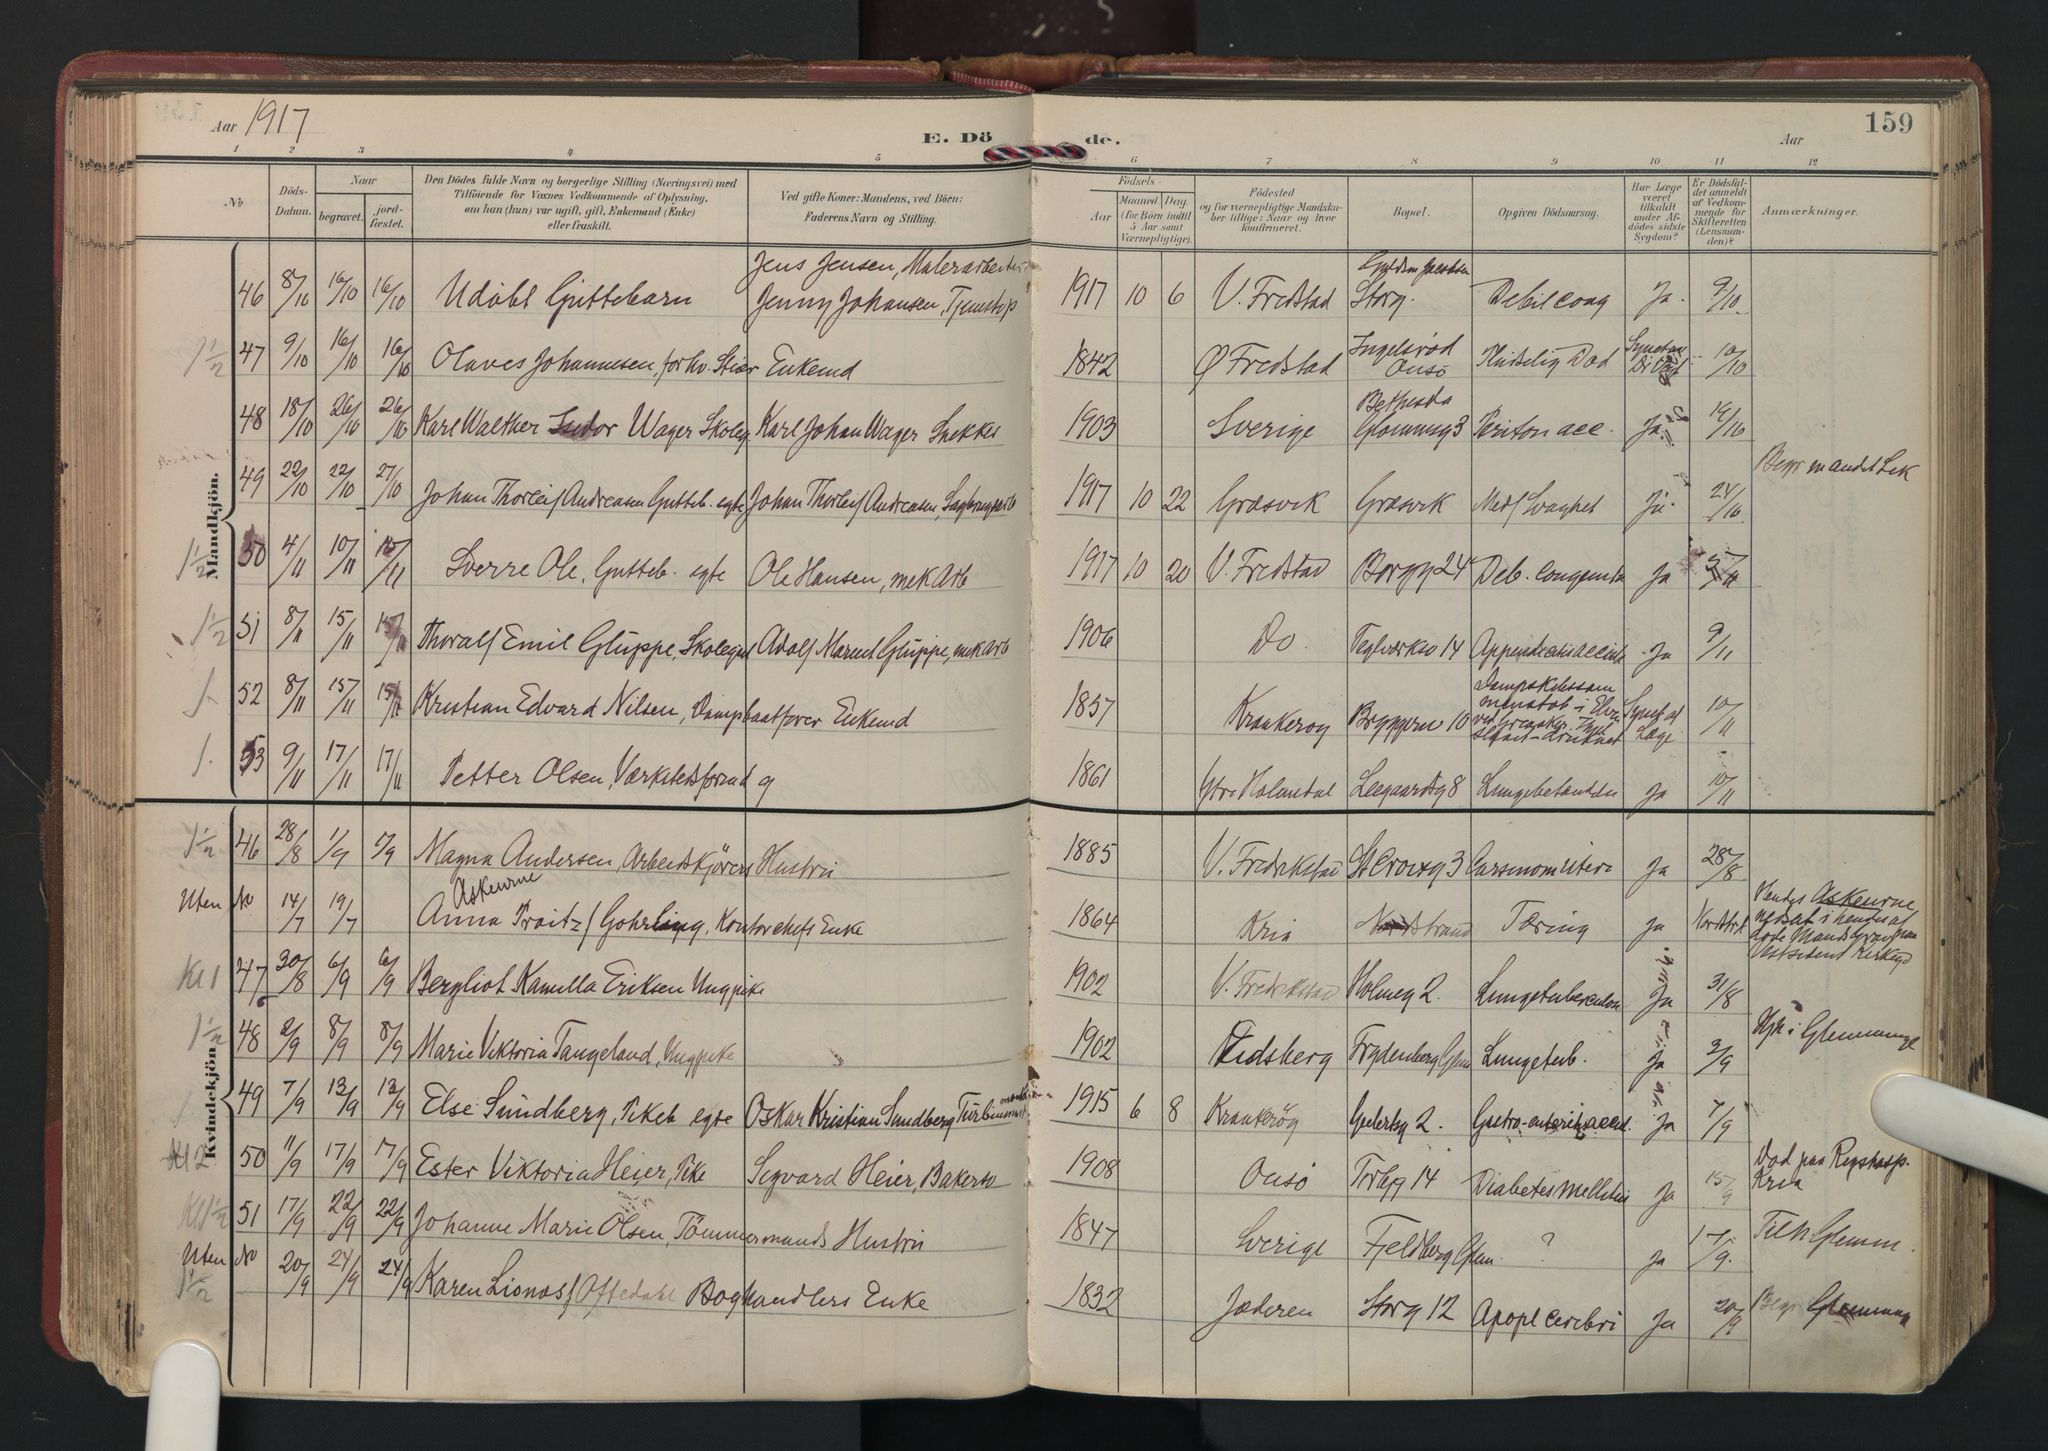 Aar 1917
E. Dö de.
Aar
159
1 2 3 4 5 6 7 8 9 10 11 12
No
Döds-Datum.
Naar
begravet.
jord-fæstet.
Den Dödes fulde Navn og borgerlige Stilling (Næringsvei) med
Tilföiende for Voxnes Vedkommende af Oplysning,
om han (hun) var ugift, gift, Enkemand (Enke)
eller fraskilt.
Ved gifte Koner: Mandens, ved Börn:
Faderens Navn og Stilling.
Födsels-
Aar
Maaned Dag
(for Börn indtil
5 Aar samt
Værnepligtige).
Födested
og for værnepligtige Mandska-
ber tillige: Naar og hvor
konfirmeret.
Bopæl.
Opgiven Dödsaarsag.
Har Læge
været
tilkaldt
under Af-
dödes sidste
Sygdom?
Er Dödsfal-
det anmeldt
af Vedkom-
mende for
Skifteretten
(Lensman-
den)?
Anmærkninger.
Mandkjön.
46 8/10 16/10 16/10 Udöbt Guttebarn Jens Jensen, Malerarbeider Jenny Johansen, Tjenestep 1917 10 6 V. Fredstad Storg. Debil cong Ja. 9/10
1½ 47 9/10 16/10 16/10 Olaves Johannesen, forhv. Stuer Enkemd 1842 Ø Fredstad Ingelsröd Onsö Pludselig Död 10/10
48 18/10 26/10 26/10 Karl Walther Isidor Wager Skoleg Karl Johan Wager Snekker 1903 Sverige Bethesda Glommeg 3 Periton acc. Ja. 19/10
49 22/10 22/10 27/10 Johan Thorleif Andreasen Gutteb. egte Johan Thorleif Andreasen, Sagbrugsarb 1917 10 22 Græsvik Græsvik Medf Svaghet Ja. 24/10 Begr
1½ 50 4/11 10/11 10/11 Sverre Ole, Gutteb. egte Ole Hansen, mek Arb 1917 10 20 V. Fredstad Borgg 24 Deb. congenita Ja 5/11
1½ 51 8/11 15/11 15/11 Thoralf Emil Gluppe, Skolegut Adolf Marent Gluppe, mek Arb 1906 Do. Teglværksv 14 Ja 9/11
1. 52 8/11 15/11 15/11 Kristian Edvard Nilsen, Dampbaatförer Enkemd 1857 Krakeröy Bryggerv 10 Dampskibssammenstöt i Elven ved druknet Synet af Læge 10/11
1. 53 9/11 17/11 17/11 Petter Olsen, Værkstedsformd g 1861 Holmedal Leegaardsg 8 Lungebetændelse Ja 10/11
Kvindekjön.
1½ 46 28/8 1/9 1/9 Magna Andersen, Arbeidskjörers Hustru 1885 V. Fredrikstad St Croixg 3 Carsinom Uteri Ja 28/8
Uten No 14/7 19/7 Anna Askeurne Traitz f Gohrling, Kontorchefs Enke 1864 Kria Nordstrand Tæring Ja Nordstr. Hendes Askeurne nedsat i hendes afdöde Mands Grav paa Vestsidens Kirkegd
Kl 1 47 30/8 6/9 6/9 Bergliot Kamilla Eriksen Ungpike 1902 V. Fredrikstad Holmeg 2. Lungetuberkulose Ja 31/8
1½ 48 2/9 8/9 8/9 Marie Viktoria Tangeland, Ungpike 1902 Eidsberg Frydenberg Glem Lungetub. Ja 3/9 i Glemminge
1 49 7/9 13/9 13/9 Else Sundberg, Pikeb egte Oskar Kristian Sundberg 1915 6 8 Krakeröy Gastro-enterit acut. Ja 7/9
Kl 2 50 11/9 17/9 17/9 Ester Viktoria Heier, Pike Sigvard Heier, Bakersv 1908 Onsö Torvg 14 Diabetes mellitus Ja 15/9 Död paa Rigshosp. Kria
Kl 1½ 51 17/9 22/9 22/9 Johanne Marie Olsen, Tömmermands Hustru 1847 Sverige Fjeldberg Glem. ? Ja Til Glemm.
Uten No 1½ 20/9 24/9 24/9 Karen Lionæs f Oftedahl Boghandlers Enke 1832 Jæderen Storg 12 Apopl cerebri Ja 20/9 Begr Glemminge